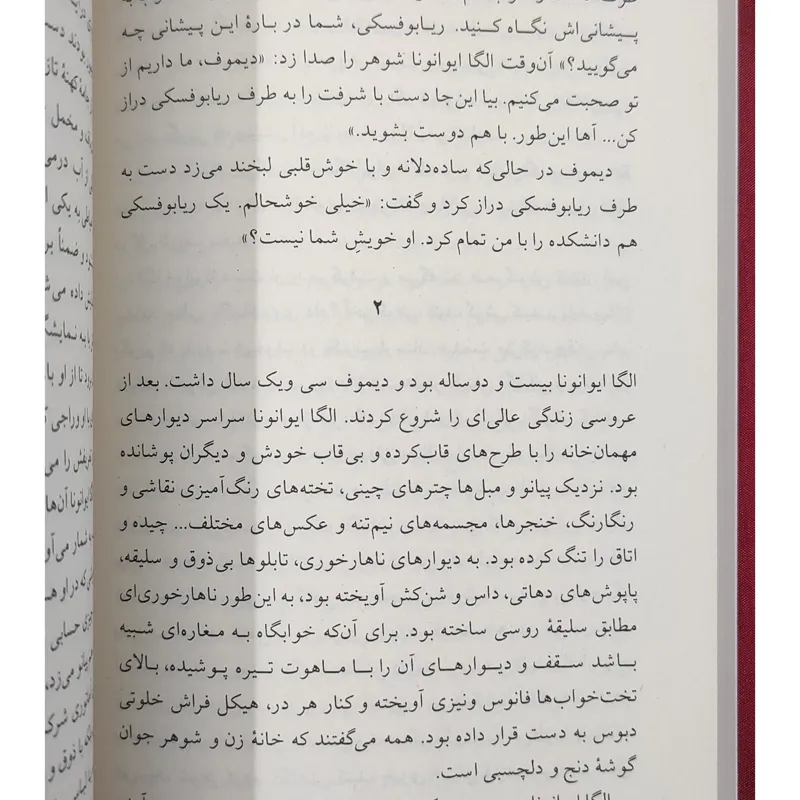 پیشانی‌اش نگاه کنید. ریابوفسکی، شما در بارهٔ این پیشانی چه
می‌گویید؟» آن‌وقت الگا ایوانونا شوهر را صدا زد: «دیموف، ما داریم از
تو صحبت می‌کنیم. بیا این‌جا دست با شرفت را به طرف ریابوفسکی دراز
کن... آها این‌طور. با هم دوست بشوید.»
دیموف در حالی‌که ساده‌دلانه و با خوش‌قلبی لبخند می‌زد دست به
طرف ریابوفسکی دراز کرد و گفت: «خیلی خوشحالم. یک ریابوفسکی
هم دانشکده را با من تمام کرد. او خویشِ شما نیست؟»
۲
الگا ایوانونا بیست و دوساله بود و دیموف سی ویک سال داشت. بعد از
عروسی زندگی عالی‌ای را شروع کردند. الگا ایوانونا سراسر دیوارهای
مهمان‌خانه را با طرح‌های قاب‌کرده و بی‌قاب خودش و دیگران پوشانده
بود. نزدیک پیانو و مبل‌ها چترهای چینی، تخته‌های رنگ‌آمیزی نقاشی و
رنگارنگ، خنجرها، مجسمه‌های نیم‌تنه و عکس‌های مختلف... چیده و
اتاق را تنگ کرده بود. به دیوارهای ناهارخوری، تابلوها بی‌ذوق و سلیقه،
پاپوش‌های دهاتی، داس و شن‌کش آویخته بود، به این‌طور ناهارخوری‌ای
مطابق سلیقهٔ روسی ساخته بود. برای آن‌که خوابگاه به مغاره‌ای شبیه
باشد سقف و دیوارهای آن را با ماهوت تیره پوشیده، بالای
تخت‌خواب‌ها فانوس ونیزی آویخته و کنار هر در، هیکل فراش خلوتی
دبوس به دست قرار داده بود. همه می‌گفتند که خانهٔ زن و شوهر جوان
گوشهٔ دنج و دلچسبی است.